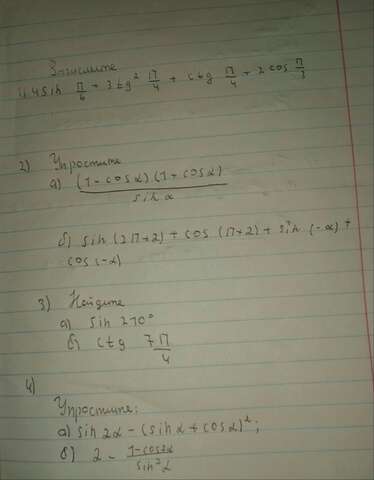 Запишите
1) 4 sin π/6 + 3 tg² π/4 + ctg π/4 + 2 cos π/3
2) Упростите
а) (1 - cos α)(1 + cos α) / sin α
б) sin (2π + 2) + cos (π + 2) + sin (-α) +
cos (-α)
3) Найдите
а) sin 270°
б) ctg 7π/4
4)
Упростите:
а) sin 2α - (sin α + cos α)²;
б) 2 - 1-cos2α / sin² α